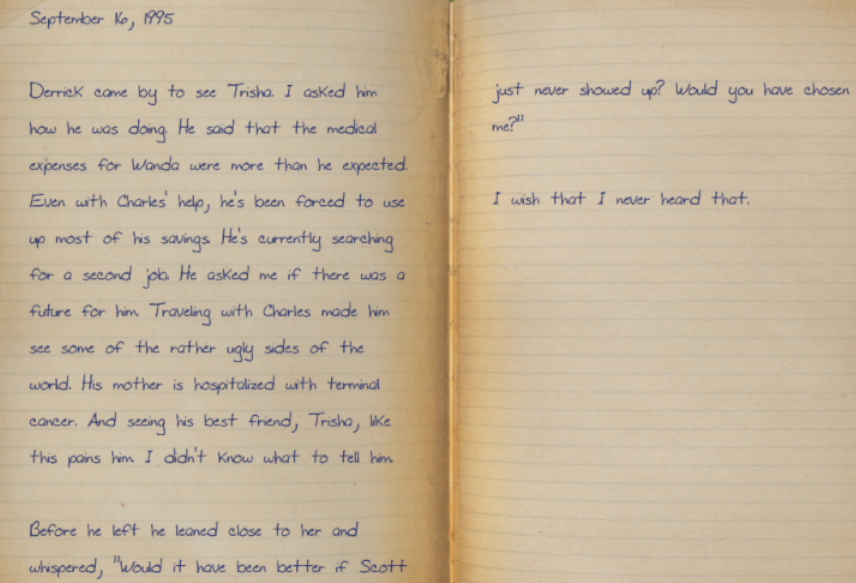 September 16, 1995
Derrick came by to see Trisha. I asked him
how he was doing. He said that the medical
expenses for Wanda were more than he expected.
Even with Charles' help, he's been forced to use
up most of his savings. He's currently searching
for a second job. He asked me if there was a
future for him. Traveling with Charles made him
see some of the rather ugly sides of the
world. His mother is hospitalized with terminal
cancer. And seeing his best friend, Trisha, like
this pains him. I didn't know what to tell him.
Before he left he leaned close to her and
whispered, "Would it have been better if Scott
just never showed up? Would you have chosen
me?"
I wish that I never heard that.